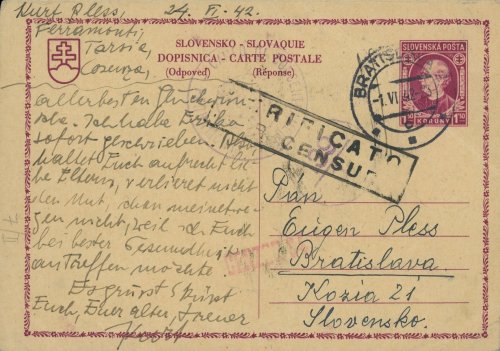 Kurt Pless, 24. VI. 42.
Ferramonti,
Tarsia,
Cosenza,
SLOVENSKO - SLOVAQUIE
DOPISNICA - CARTE POSTALE
(Odpoveď) (Réponse)
SLOVENSKÁ POŠTA
KORUNY 1,50
BRATISLAVA
1. VI. 42
RIFICATO
CENSU
allerbesten
sofort geschrieben.
haltet Euch aufrecht liebe
Eltern, verlieret nicht
den Mut, schon meinetwe-
gen nicht, weil ich Euch
bei bester Gesundheit
antreffen möchte.
Es grüsst & küsst
Euch, Euer alter, treuer
Pan
Eugen Pless
Bratislava
Kozia 21
Slovensko.